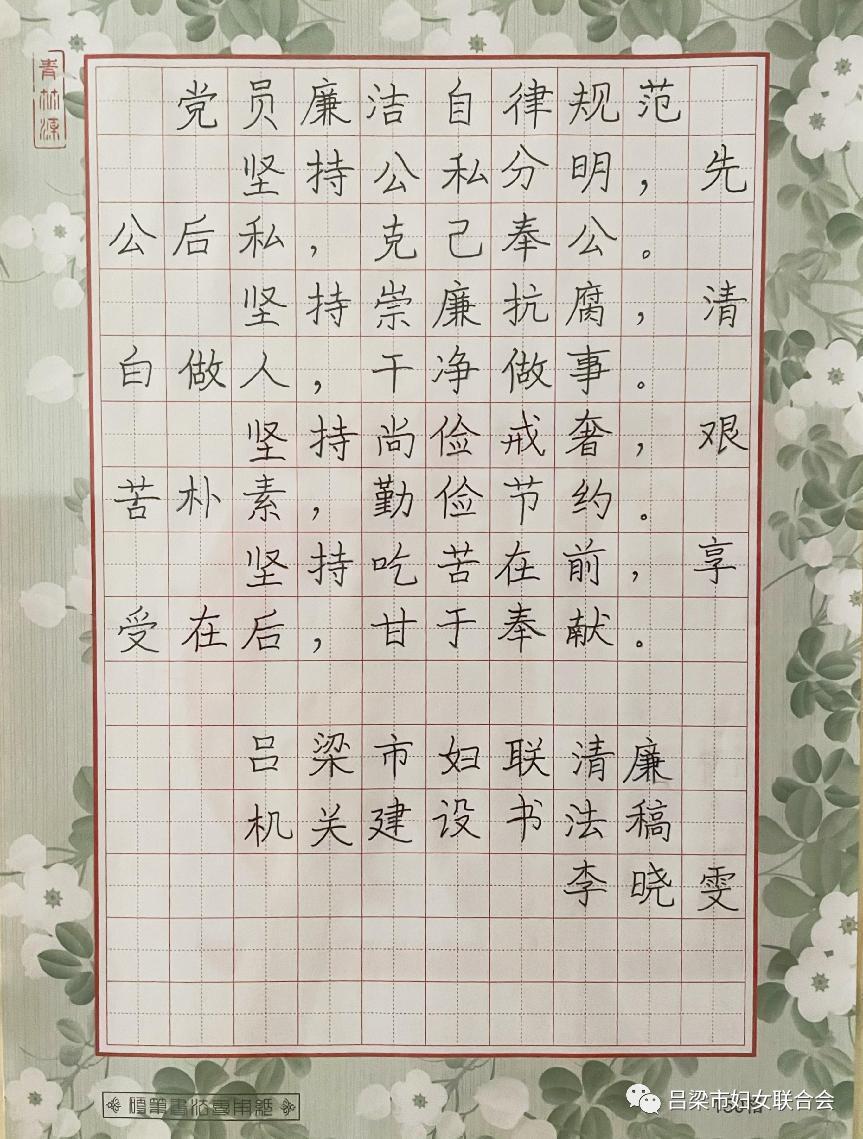 青林源
党员廉洁自律规范
坚持公私分明，先
公后私，克己奉公。
坚持崇廉抗腐，清
白做人，干净做事。
坚持尚俭戒奢，艰
苦朴素，勤俭节约。
坚持吃苦在前，享
受在后，甘于奉献。
吕梁市妇联清廉
机关建设书法稿
李晓雯
硬笔书法专用纸
吕梁市妇女联合会